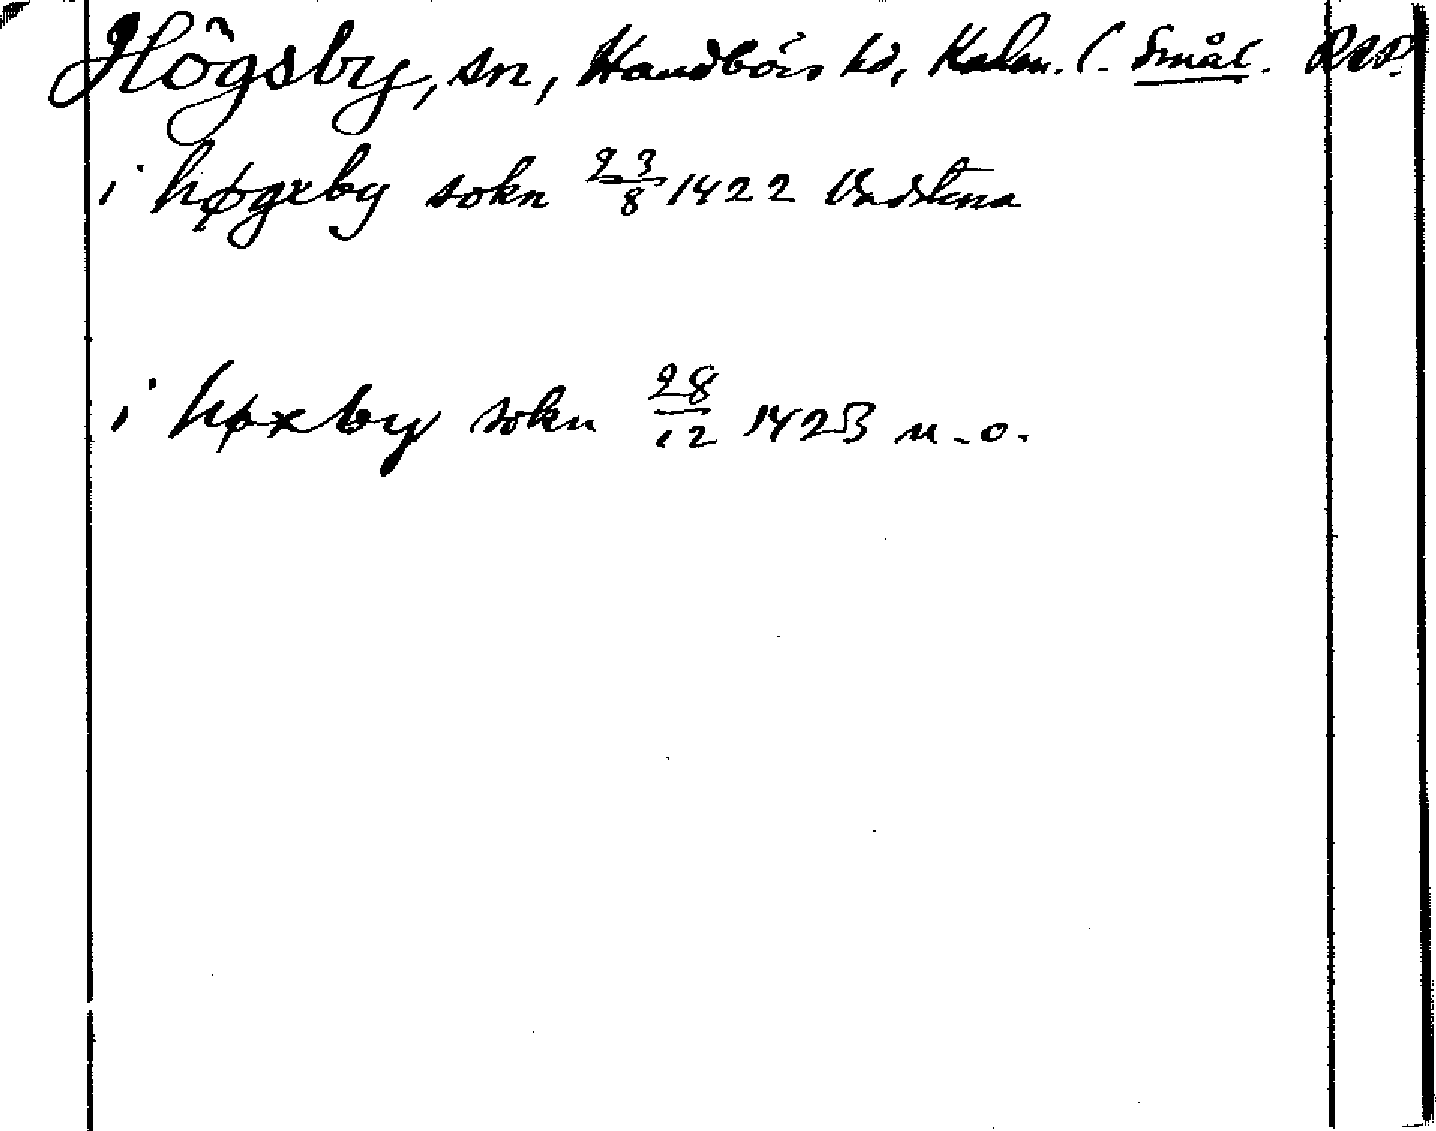 Högsby, sn, Handbörs hd, Kalm. l. Smål. RAP.
i høgxby sokn 23/8 1422 Vadstena
i høxby sokn 28/12 1423 u.o.